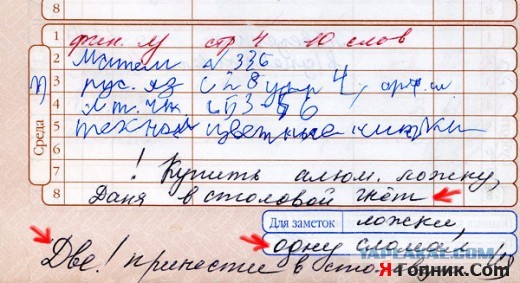 1
1 фин. у стр 4 10 слов
2 Матем № 336
3 рус. яз с 28 упр 4,
4 Лит. чт. с 53-56
5 технол цветные нитки
6
7 ! Купить алюм. ложку,
8 Даня в столовой гнёт
Среда
Для заметок ложки,
одну сломал
Две! принести в столовую!
YAPLAKAL.COM
ЯГопник.Com